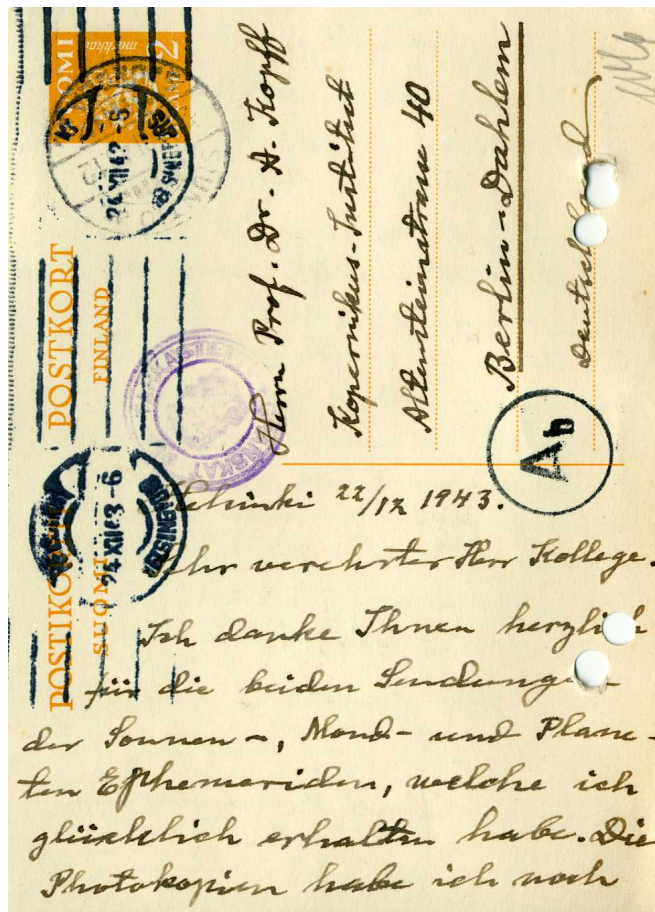 SUOMI
2
markkaa
FINLAND
24 XII 43-6
24.XII 43-6
POSTIKORTTI
SUOMI
POSTKORT
FINLAND
Ab
Herrn Prof. Dr. A. Kopff
Kopernikus-Institut
Altensteinstrasse 40
Berlin-Dahlem
Deutschland
Helsinki 22/12 1943.
Sehr verehrter Herr Kollege.
Ich danke Ihnen herzlich
für die beiden Sendungen
der Sonnen-, Mond- und Plane-
ten Ephemeriden, welche ich
glücklich erhalten habe. Die
Photokopien habe ich noch